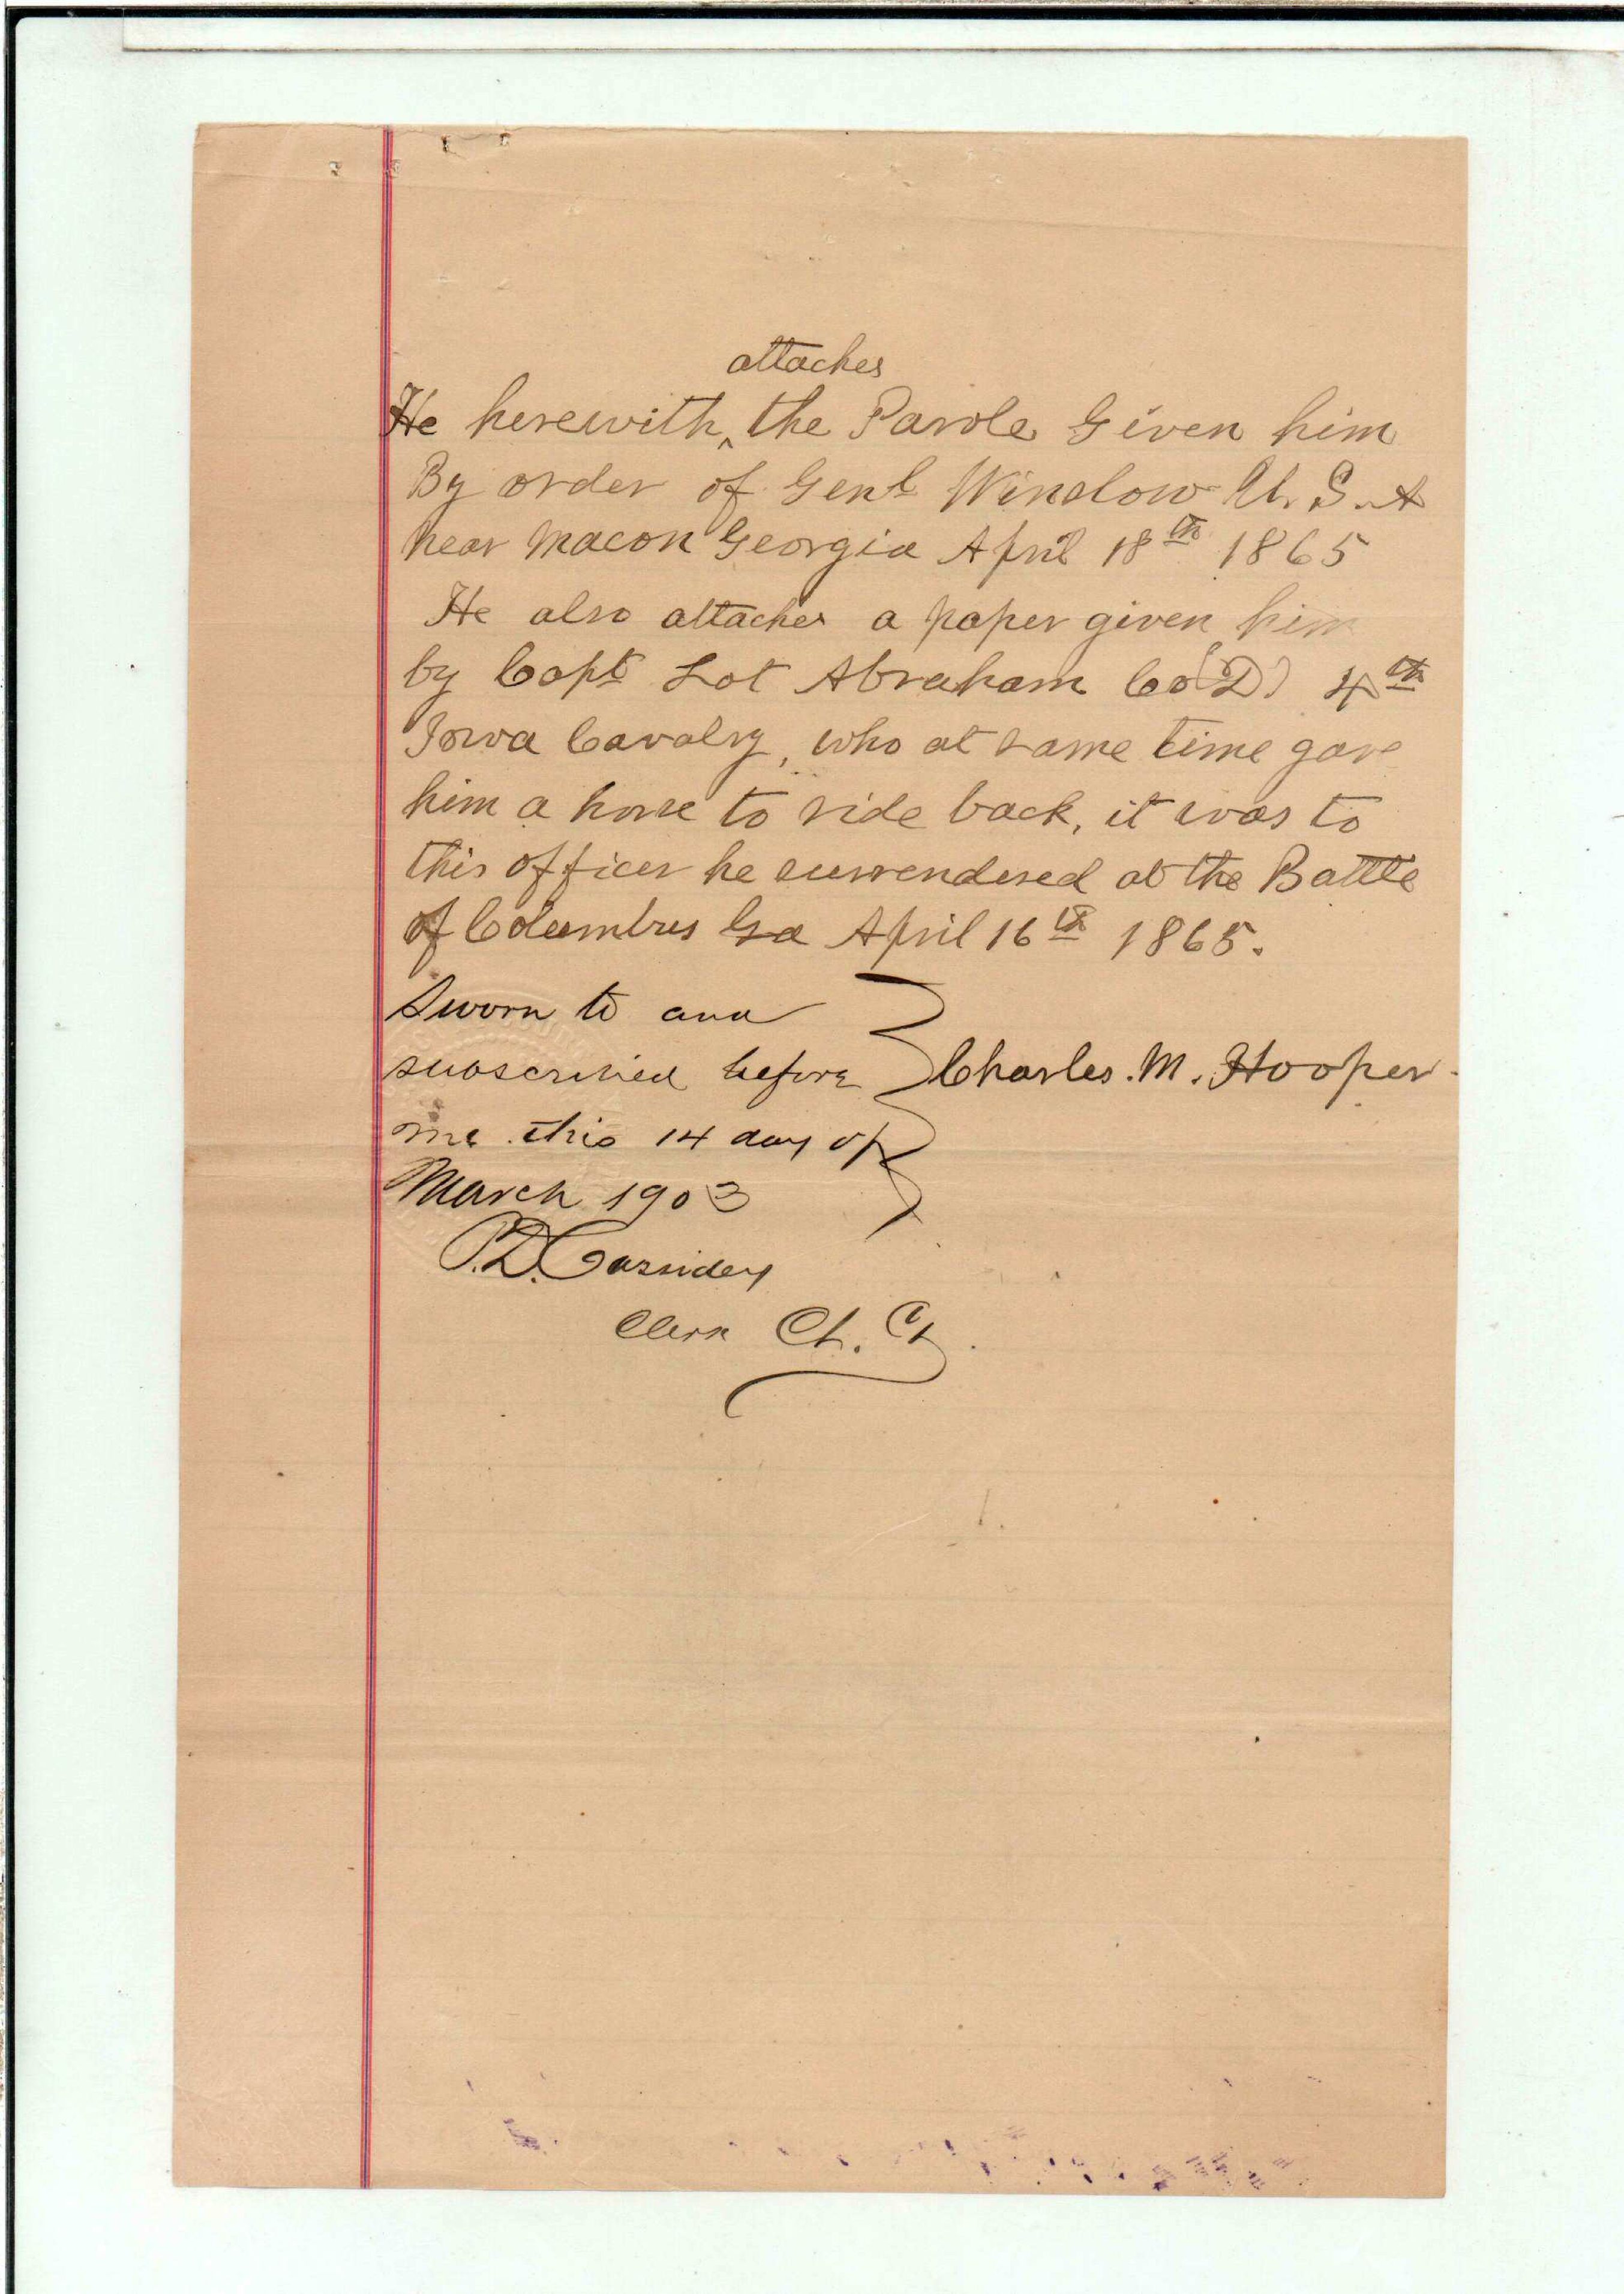 attaches
He herewith ^ the Parole Given him
By order of Genl Winslow U. S. A
near Macon Georgia April 18th 1865
He also attaches a paper given him
by Capt Lot Abraham Co (D) 4th
Iowa Cavalry, who at same time gave
him a horse to ride back, it was to
this officer he surrendered at the Battle
of Columbus Ga April 16th 1865.
Sworn to and
subscribed before Charles. M. Hooper
me this 14 day of
March 1903
P. D. Cassidey
Clerk Ch. Ct